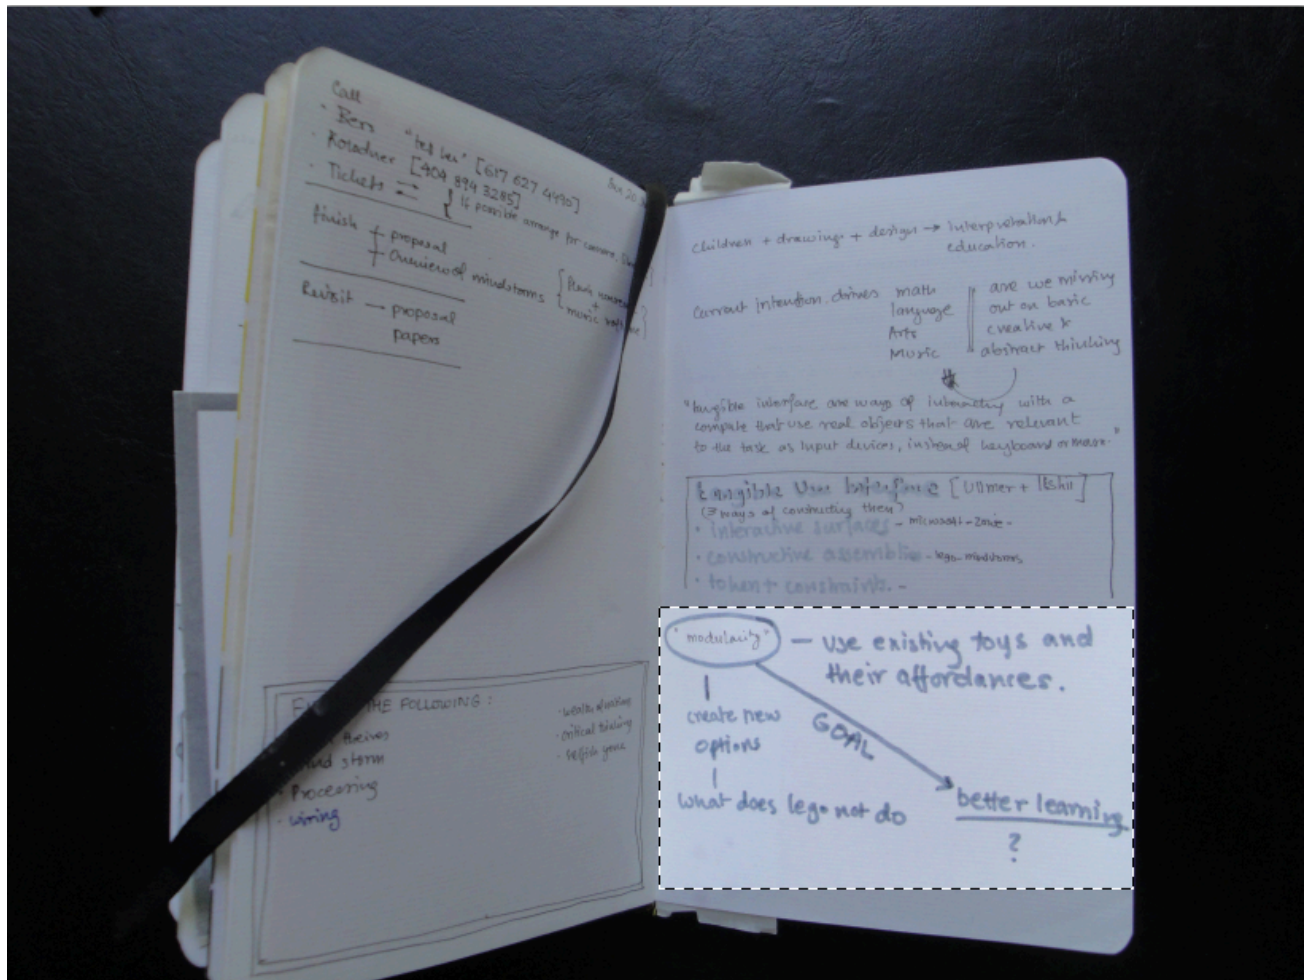 Call
· Bers "tes ber" [617 627 4490]
· Kolodner [404 894 3285]
· Tickets { If possible arrange for
Finish proposal
Overview of mindstorms
+
music
Revisit → proposal
papers
THE FOLLOWING :
· wealth of nations
· critical thinking
· selfish gene
storm
· Processing
· wiring
children + drawings + design → interpretation &
education.
Current intention. drives math
language
Arts
Music
are we missing
out on basic
creative &
abstract thinking
"tangible interface are ways of interacting with a
compute that use real objects that are relevant
to the task as input devices, instead of keyboard or mouse."
tangible Use Interface [Ullmer + Ishii]
(3 ways of constructing them)
· interactive surfaces - microsoft -
· constructive assemblies - lego - mindstorms
· token + constraints. -
"modularity" — use existing toys and
their affordances.
create new
options
GOAL
what does lego not do
better learning
?